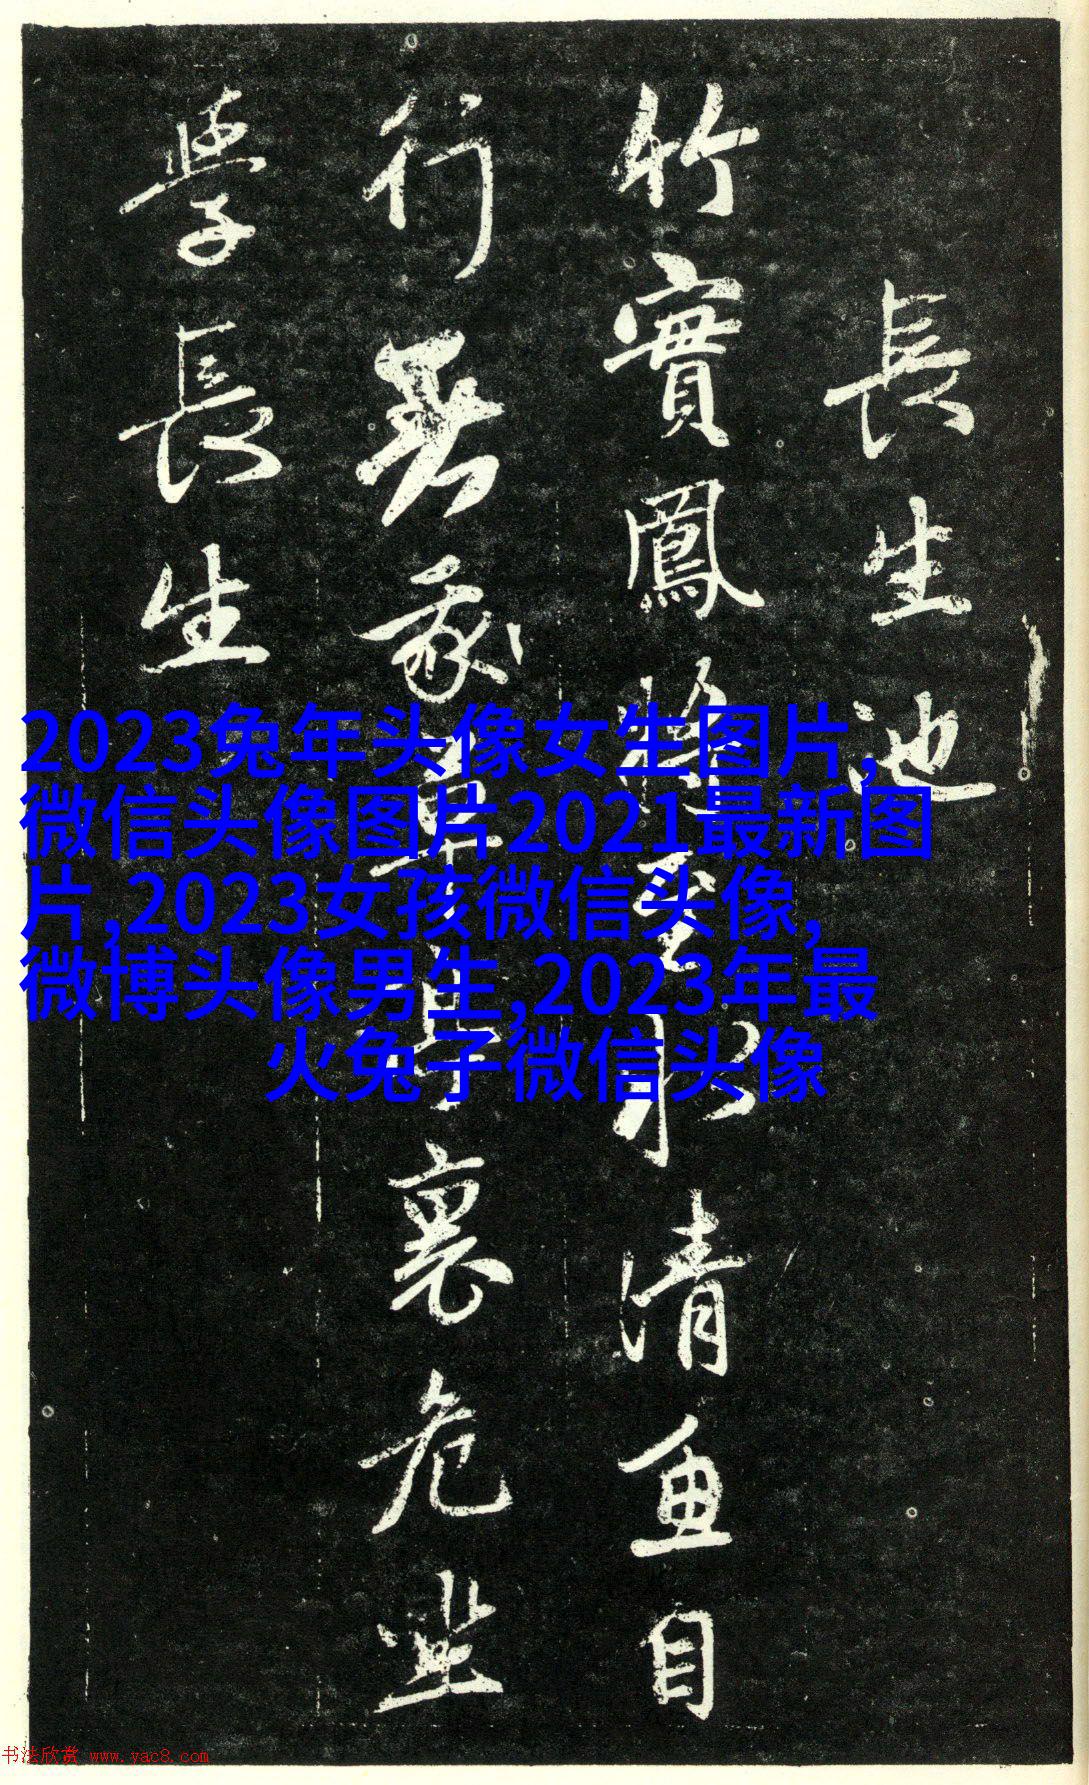 長生池
竹實鳳將至水清魚自
行無裏危坐
學長生
2023兔年头像女生图片,
微信头像图片2021最新图
片,2023女孩微信头像,
微博头像男生,2023年最
火兔子微信头像
书法欣赏 www.yac8.com